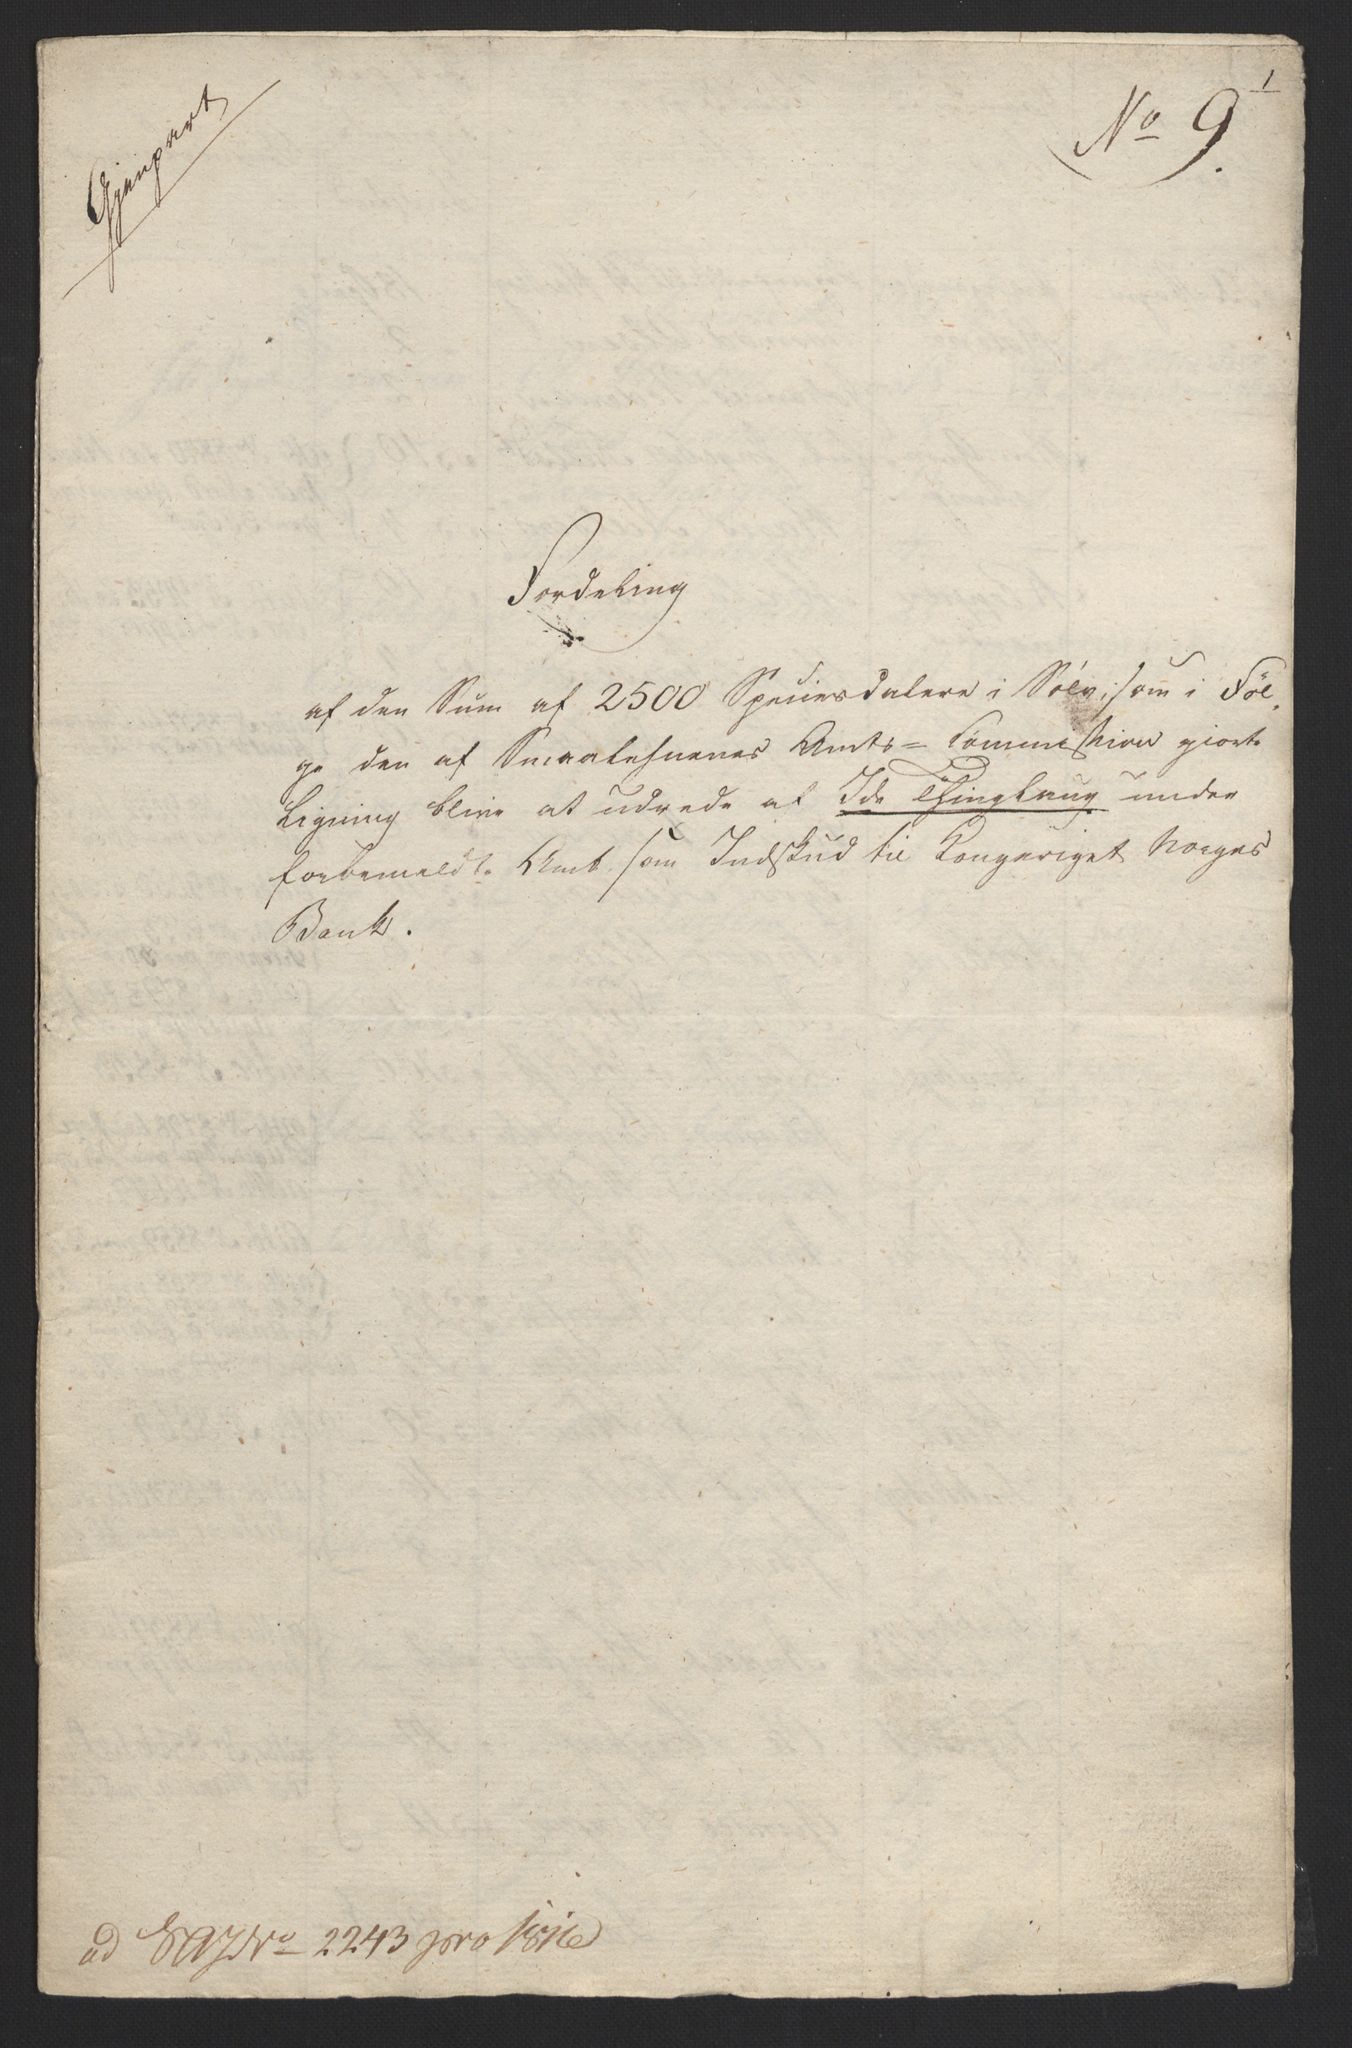 Gjenpart
1
No 9.
Fordeling
af den Sum af 2500 Speciesdalere i Sølv, som i Føl-
ge den af Smaalehnenes Amts=Commission giorte
Ligning bliver at udrede af Ide Thinglaug under
forbemeldte Amt som Indskud til Kongeriget Norges
Bank.
ad No 2243 pro 1816